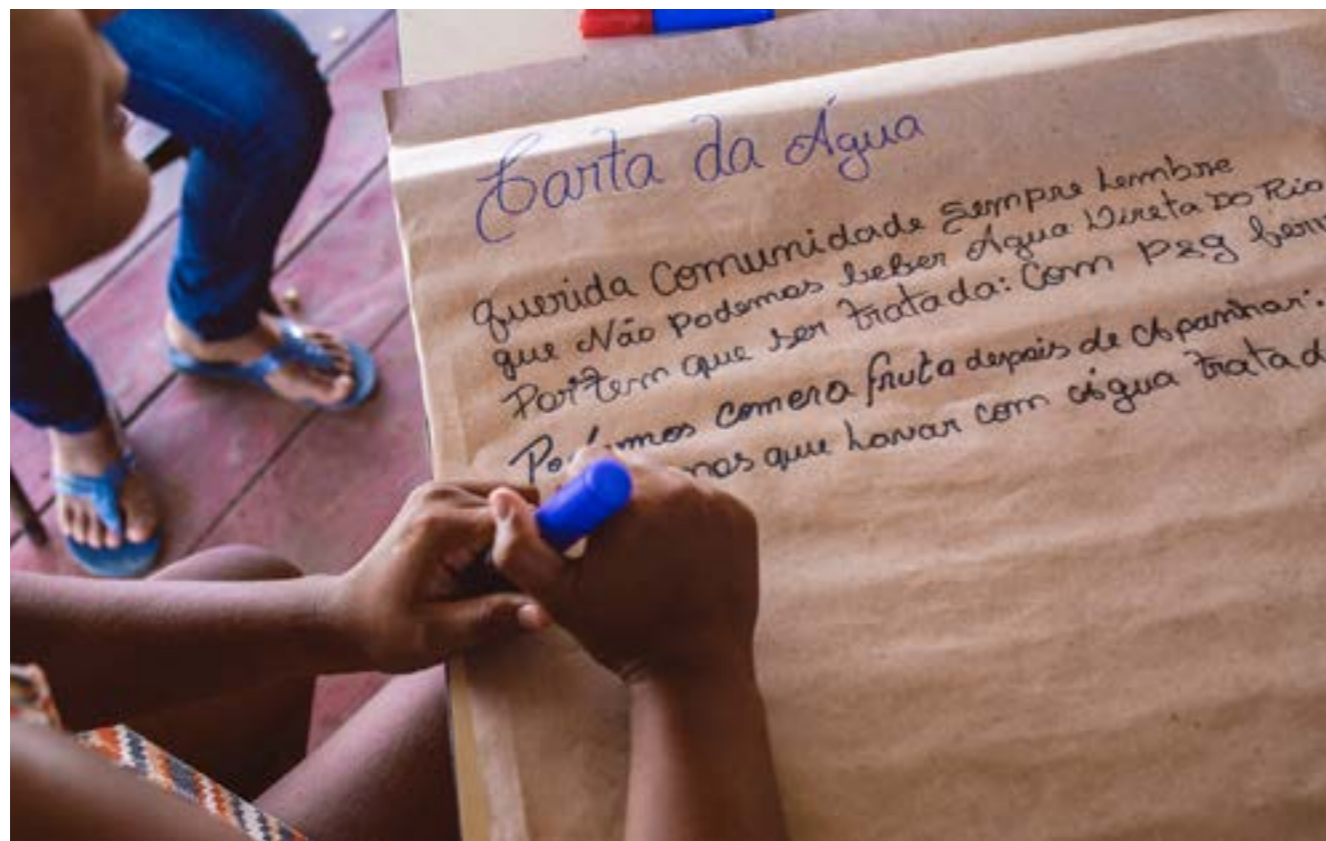 Carta da Água
querida Comunidade Sempre Lembre
que Não Podemos beber Água Direta Do Rio
Por Tem que ser Tratada: Com P&g
Podemos comer a fruta depois de Apanhar.
que Lavar com Água Tratad